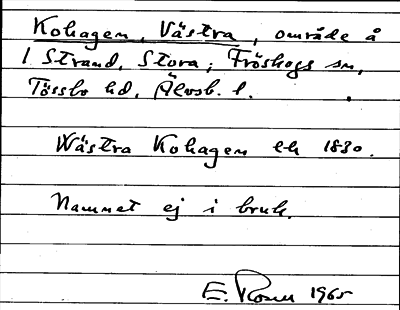 Kohagen, Västra, område å
1 Strand, Stora; Fröskogs sn,
Tössbo hd, Älvsb. l.
Wästra Kohagen lh 1830.
Namnet ej i bruk.
E. Rosell 1965